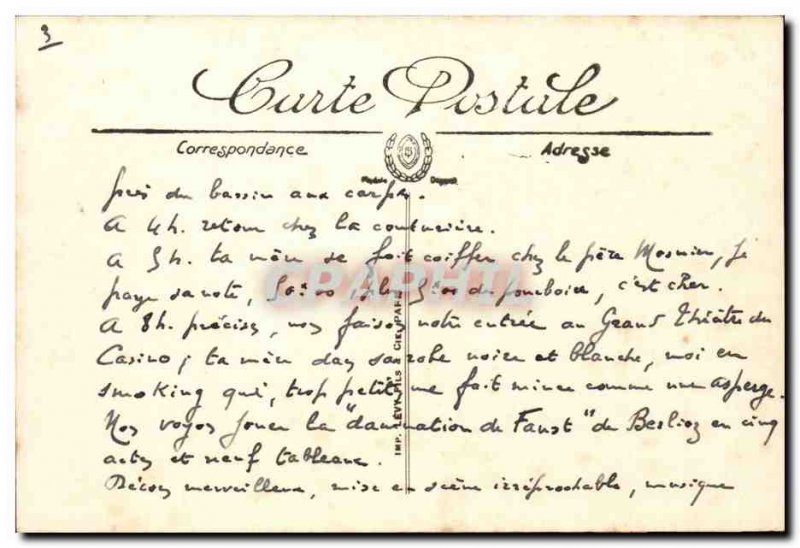 3
Carte Postale
Correspondance
Adresse
près du bassin aux carpes.
A 4h. retour chez la couturière.
A 5h. ta mère se fait coiffer chez le père Mosnier, je
paye sa note, 50f00 plus 5f00 de pourboire, c'est cher.
A 8h. précises, nous faisons notre entrée au Grand Théâtre du
Casino; ta mère dans sa robe noire et blanche, moi en
smoking qui, trop petit, me fait mince comme une asperge.
Nous voyons jouer la "damnation de Faust" de Berlioz en cinq
actes et neuf tableaux.
Décors merveilleux, mise en scène irréprochable, musique
IMP. LÉVY FILS & CIE PARIS
CPAPHIL